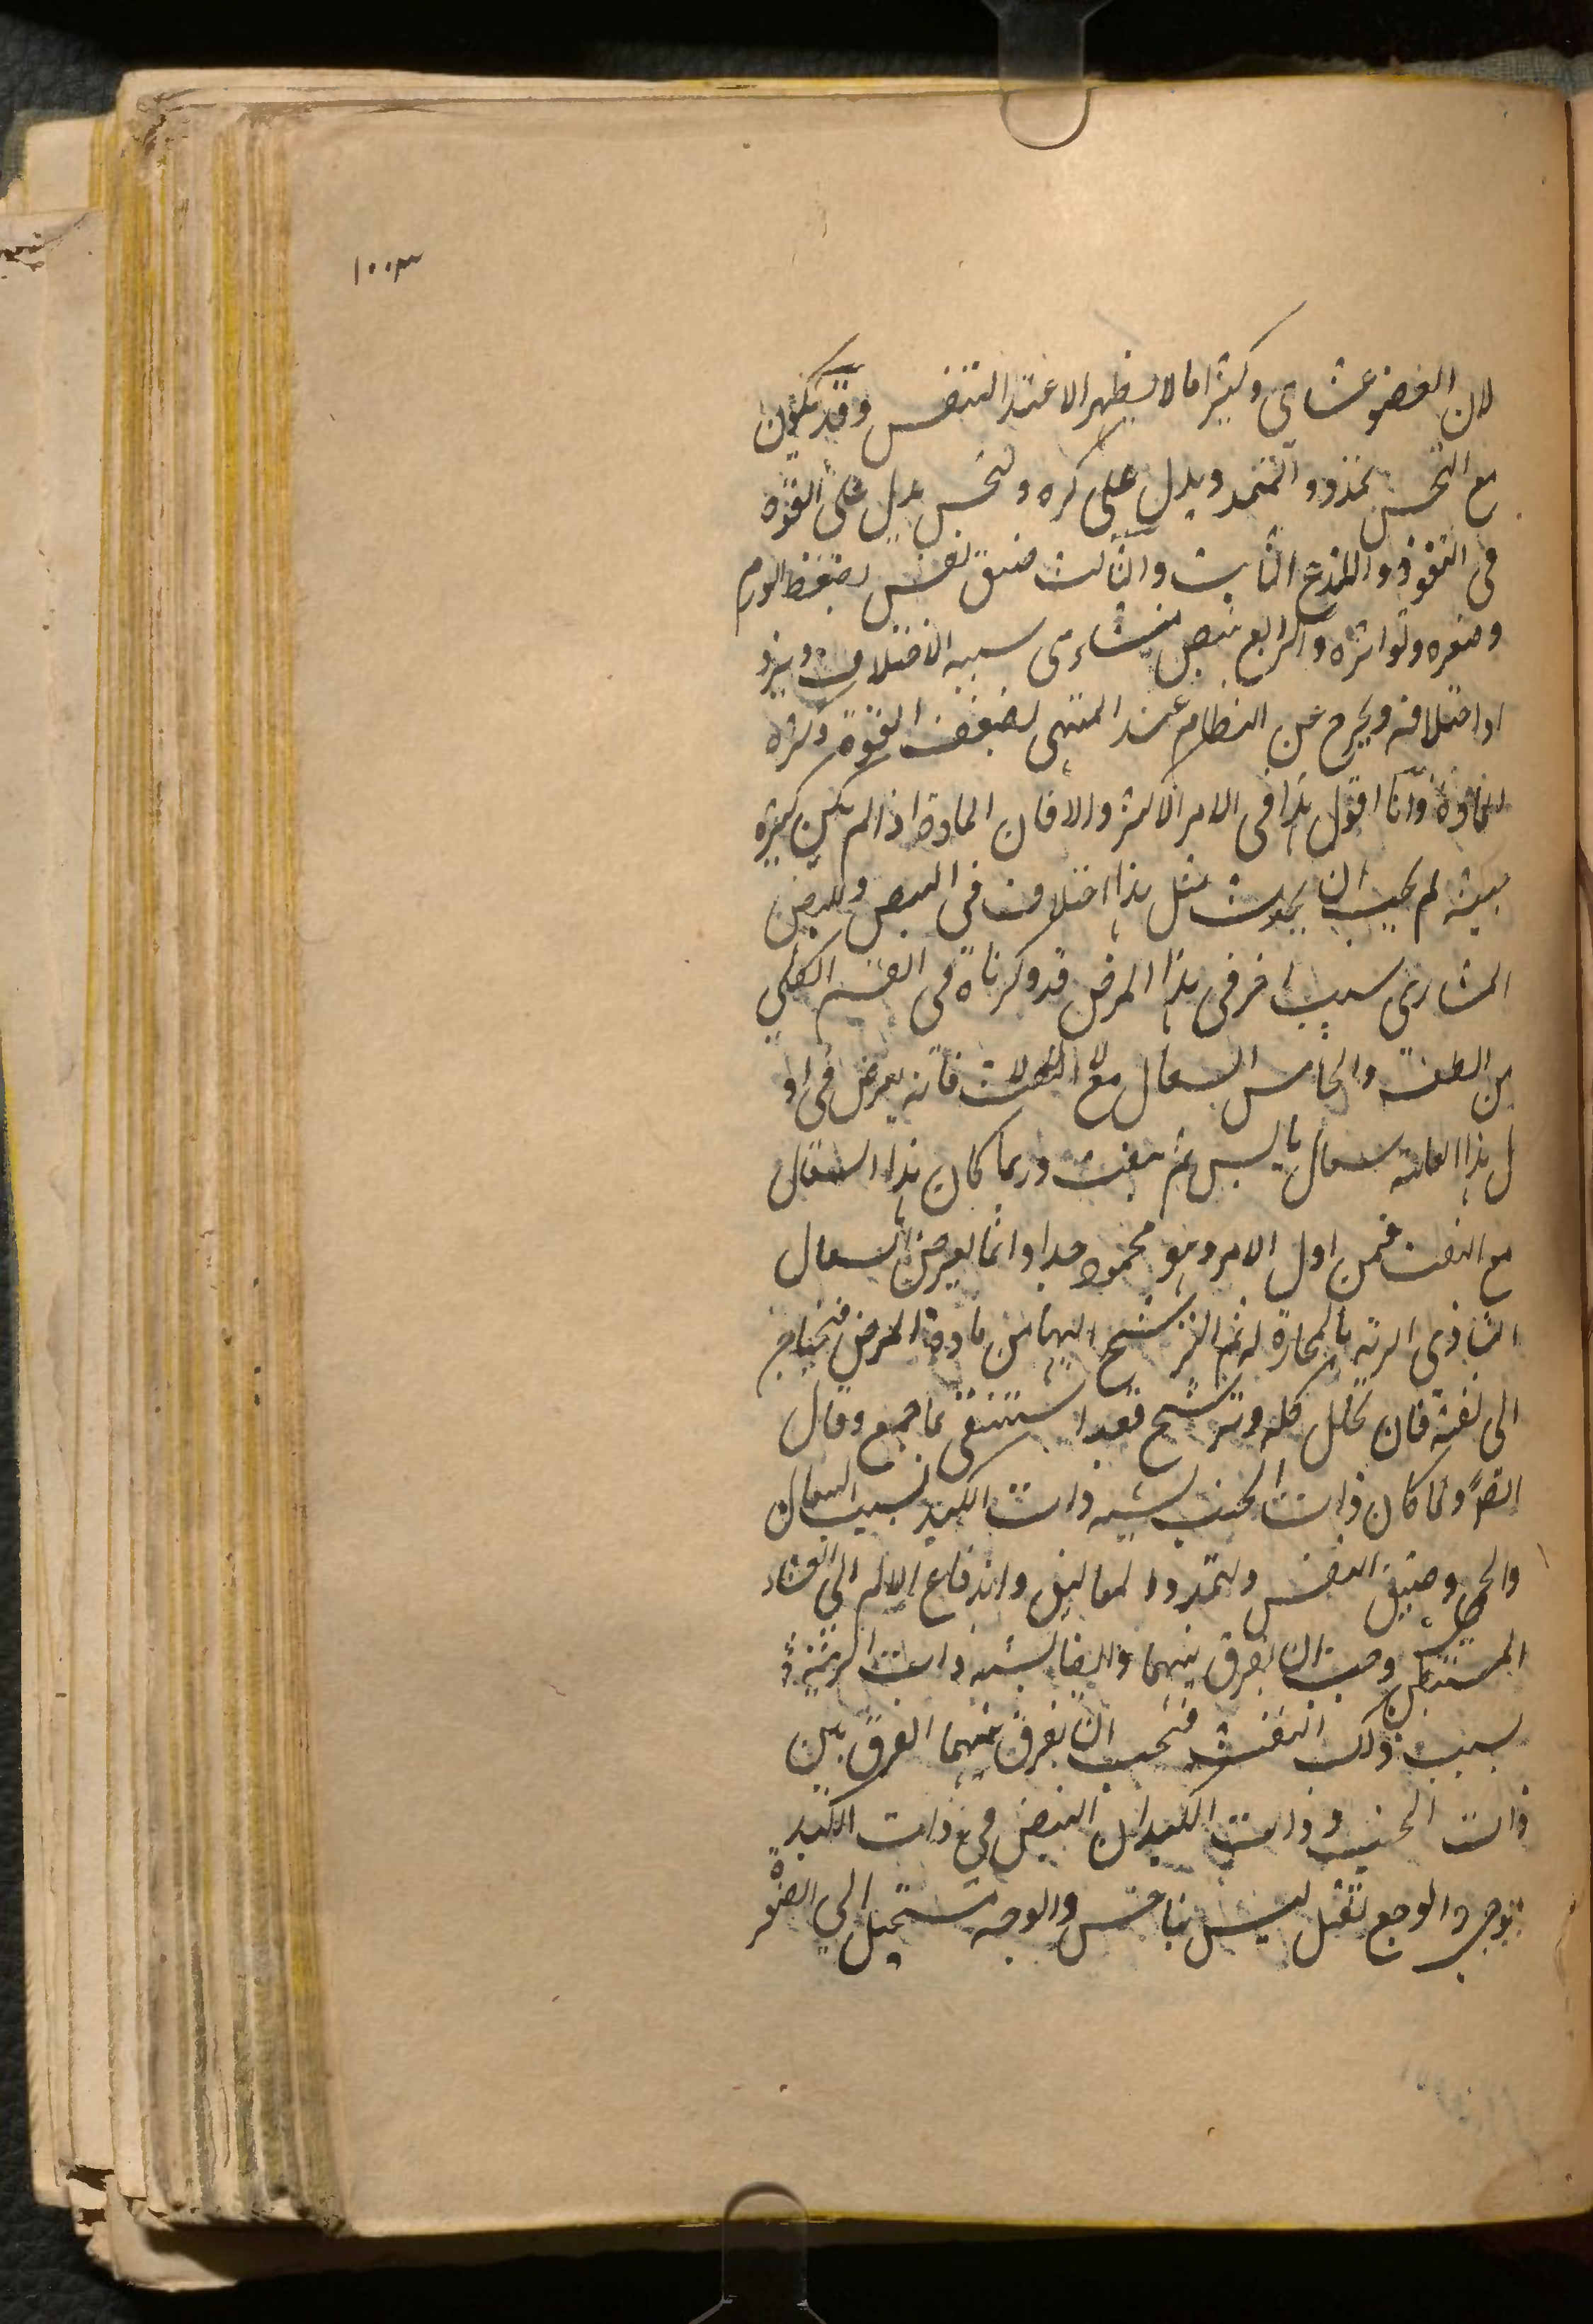 ١٠٠٣
لان العضو غشاى وكثيرا ما لا يظهر الا عند التنفس وقد يكون
مع النخس تمدد والتمدد يدل على كثره والنخس يدل على القوة
فى النفوذ واللذع الثابت والثالث ضيق نفس لضغط الورم
وصغره وتواتره والرابع نبض منشارى سببه الاختلاف ويزد
اد اختلافه ويخرج عن النظام عند المنتهى لضعف القوة وكثرة
المادة وانا اقول هذا فى الامر الاكثر والا فان المادة اذا لم يكن كثيرة
لم يجب ان يحدث مثل هذا اختلاف فى النبض وللنبض
المنشارى سبب اخر فى هذا المرض قد ذكرناه فى القسم الكلى
من الطب والخامس السعال مع النفث فانه يعرض فى او
ل هذا العلة سعال يابس ثم ينفث وربما كان هذا السعال
مع النفث فمن اول الامر وهو محمود جدا وانما يعرض السعال
لتاذى الرية بالمجاورة ثم لترشح اليها من مادة المرض فتحتاج
الى نفثه فان تحلل كله وترشح فقد استنقى ما جمع وقال
ايضا ولما كان ذات الجنب يشبه ذات الكبد بسبب السعال
والحمى وضيق النفس ولتمدد المعاليق واندفاع الالم الى الغشاء
المستبطن وجب ان يفرق بينهما وايضا يشبه ذات الرية و
بسبب ذلك النفث فيجب ان يفرق بينهما الفرق بين
ذات الجنب وذات الكبد ان النبض فى ذات الكبد
موجى والوجع ثقيل ليس بناخس والوجه مستحيل الى الصفرة